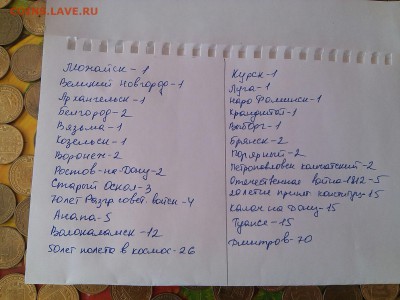 Можайск-1
Великий Новгород-1
Архангельск-1
Белгород-2
Вязьма-1
Козельск-1
Воронеж-2
Ростов-на-Дону-2
Старый Оскол-3
70лет Разгр. совет. войск-4
Анапа-5
Волоколамск-12
50лет полета в космос-26
Курск-1
Луга-1
Наро Фоминск-1
Кронштадт-1
Выборг-1
Брянск-2
Полярный-2
Петропавловск камчатский-2
Отечественная война 1812-5
20летие принят конституц-15
Калач на Дону-15
Туапсе-15
Дмитров-70